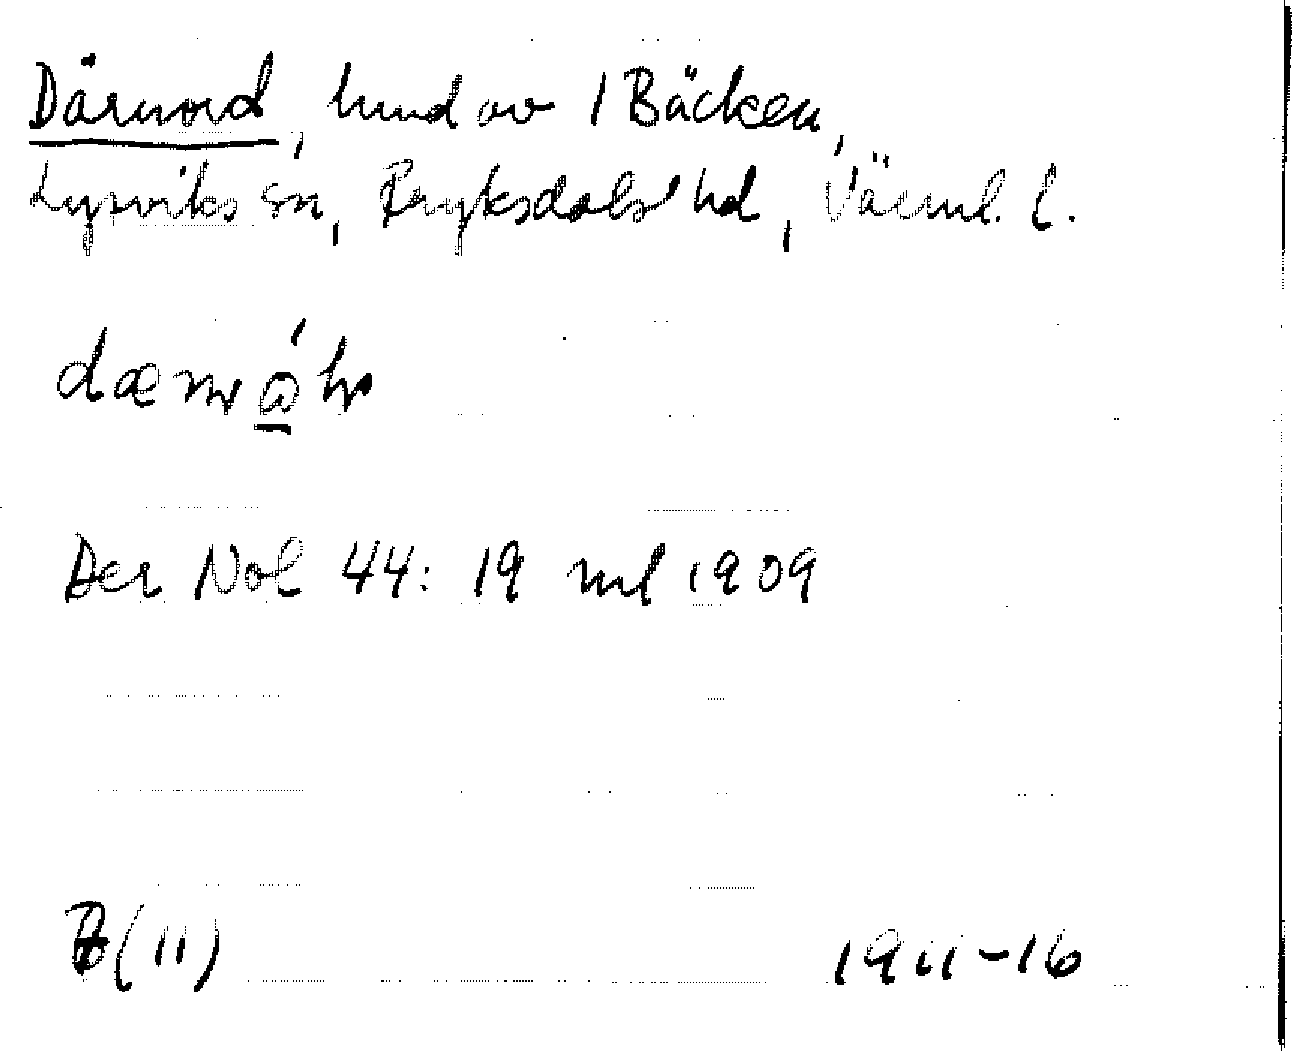 Därnord, hmd av 1 Bäcken,
Lysviks sn, Fryksdals hd, Värml. l.
Ber Nol 44: 19 ml 1909
B(11) 1911-16